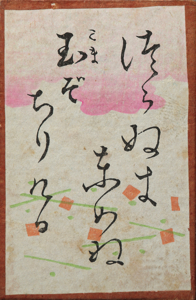 つらぬき
とめぬ
玉ぞ
たま
ちりける